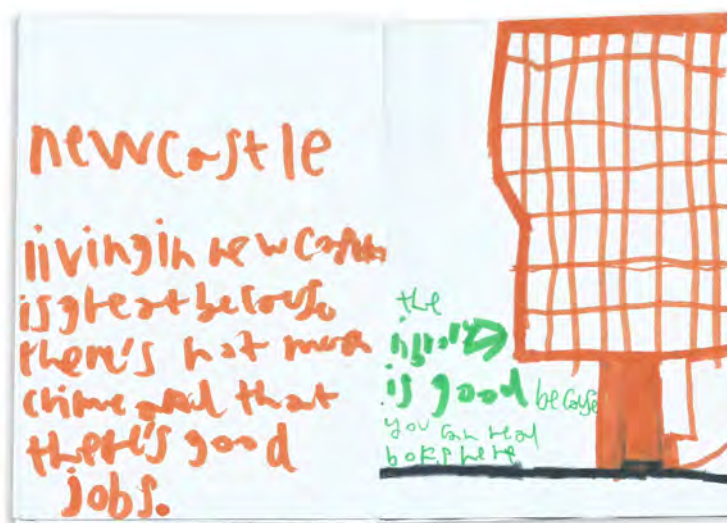 newcastle
living in newcastle
is great because
there's not much
crime and that
there's good
jobs.
the
is good because
you can read
books here